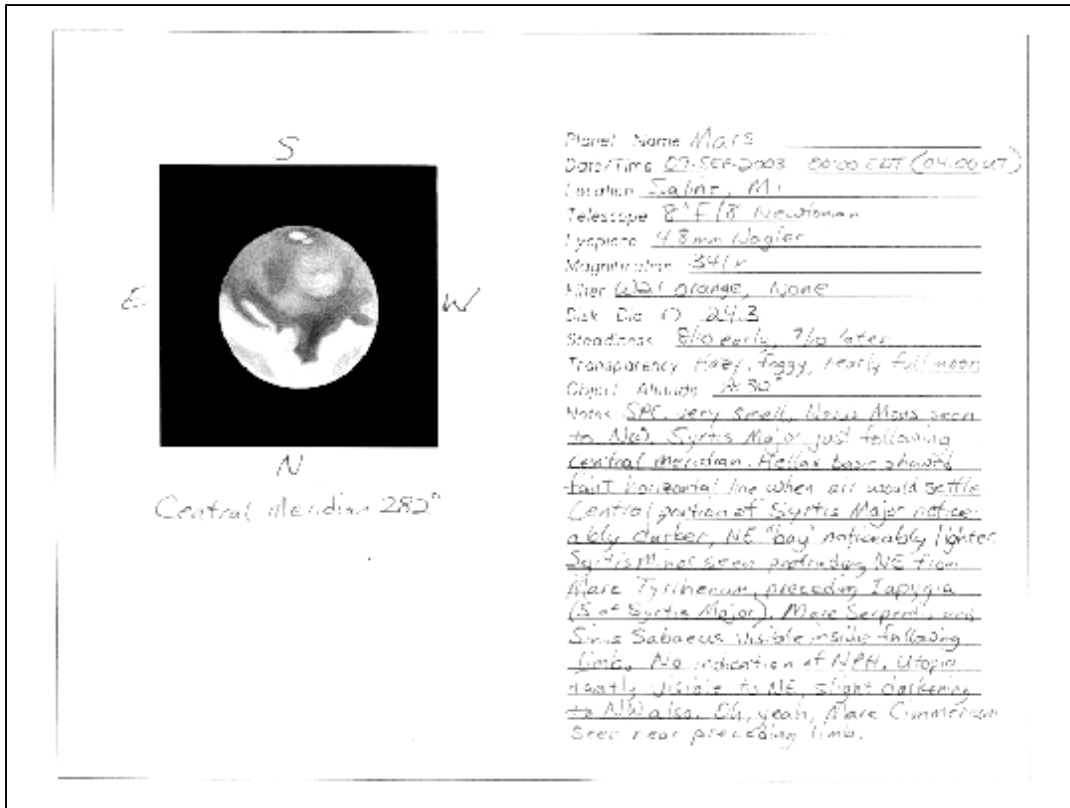 S
E
W
N
Central Meridian 282°
Planet Name Mars
Date/Time 07-SEP-2003 00:00 EDT (04:00 UT)
Location Saline, Mi
Telescope 8" F/8 Newtonian
Eyepiece 4.8mm Nagler
Magnification 341x
Filter W21 orange, None
Disk Dia (") 24.3
Steadiness 8/10 early, 7/10 later
Transparency Hazy, foggy, nearly full moon
Object Altitude 30°
Notes SPC very small, Novus Mons seen
to Syrtis Major just following
central meridian. Hellas showed
faint horizontal line when air would settle
Central portion of Syrtis Major notice-
ably darker, NE "bay" noticably lighter.
Syrtis Minor seen protruding NE from
Mare Tyrrhenum, preceding Iapygia
(S of Syrtis Major). Mare Serpentis and
Sinus Sabaeus visible inside following
limb. No indication of NPH. Utopia
visible to NE, slight darkening
to NW also. Oh, yeah, Mare Cimmerium
seen near preceding limb.